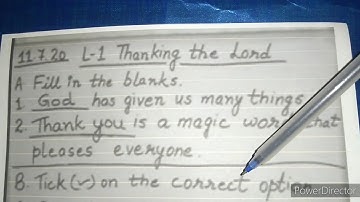 11.7.20 L-1 Thanking the Lord
A Fill in the blanks.
1 God has given us many things
2. Thank you is a magic word that
pleases everyone.
B. Tick (✓) on the correct option
PowerDirector